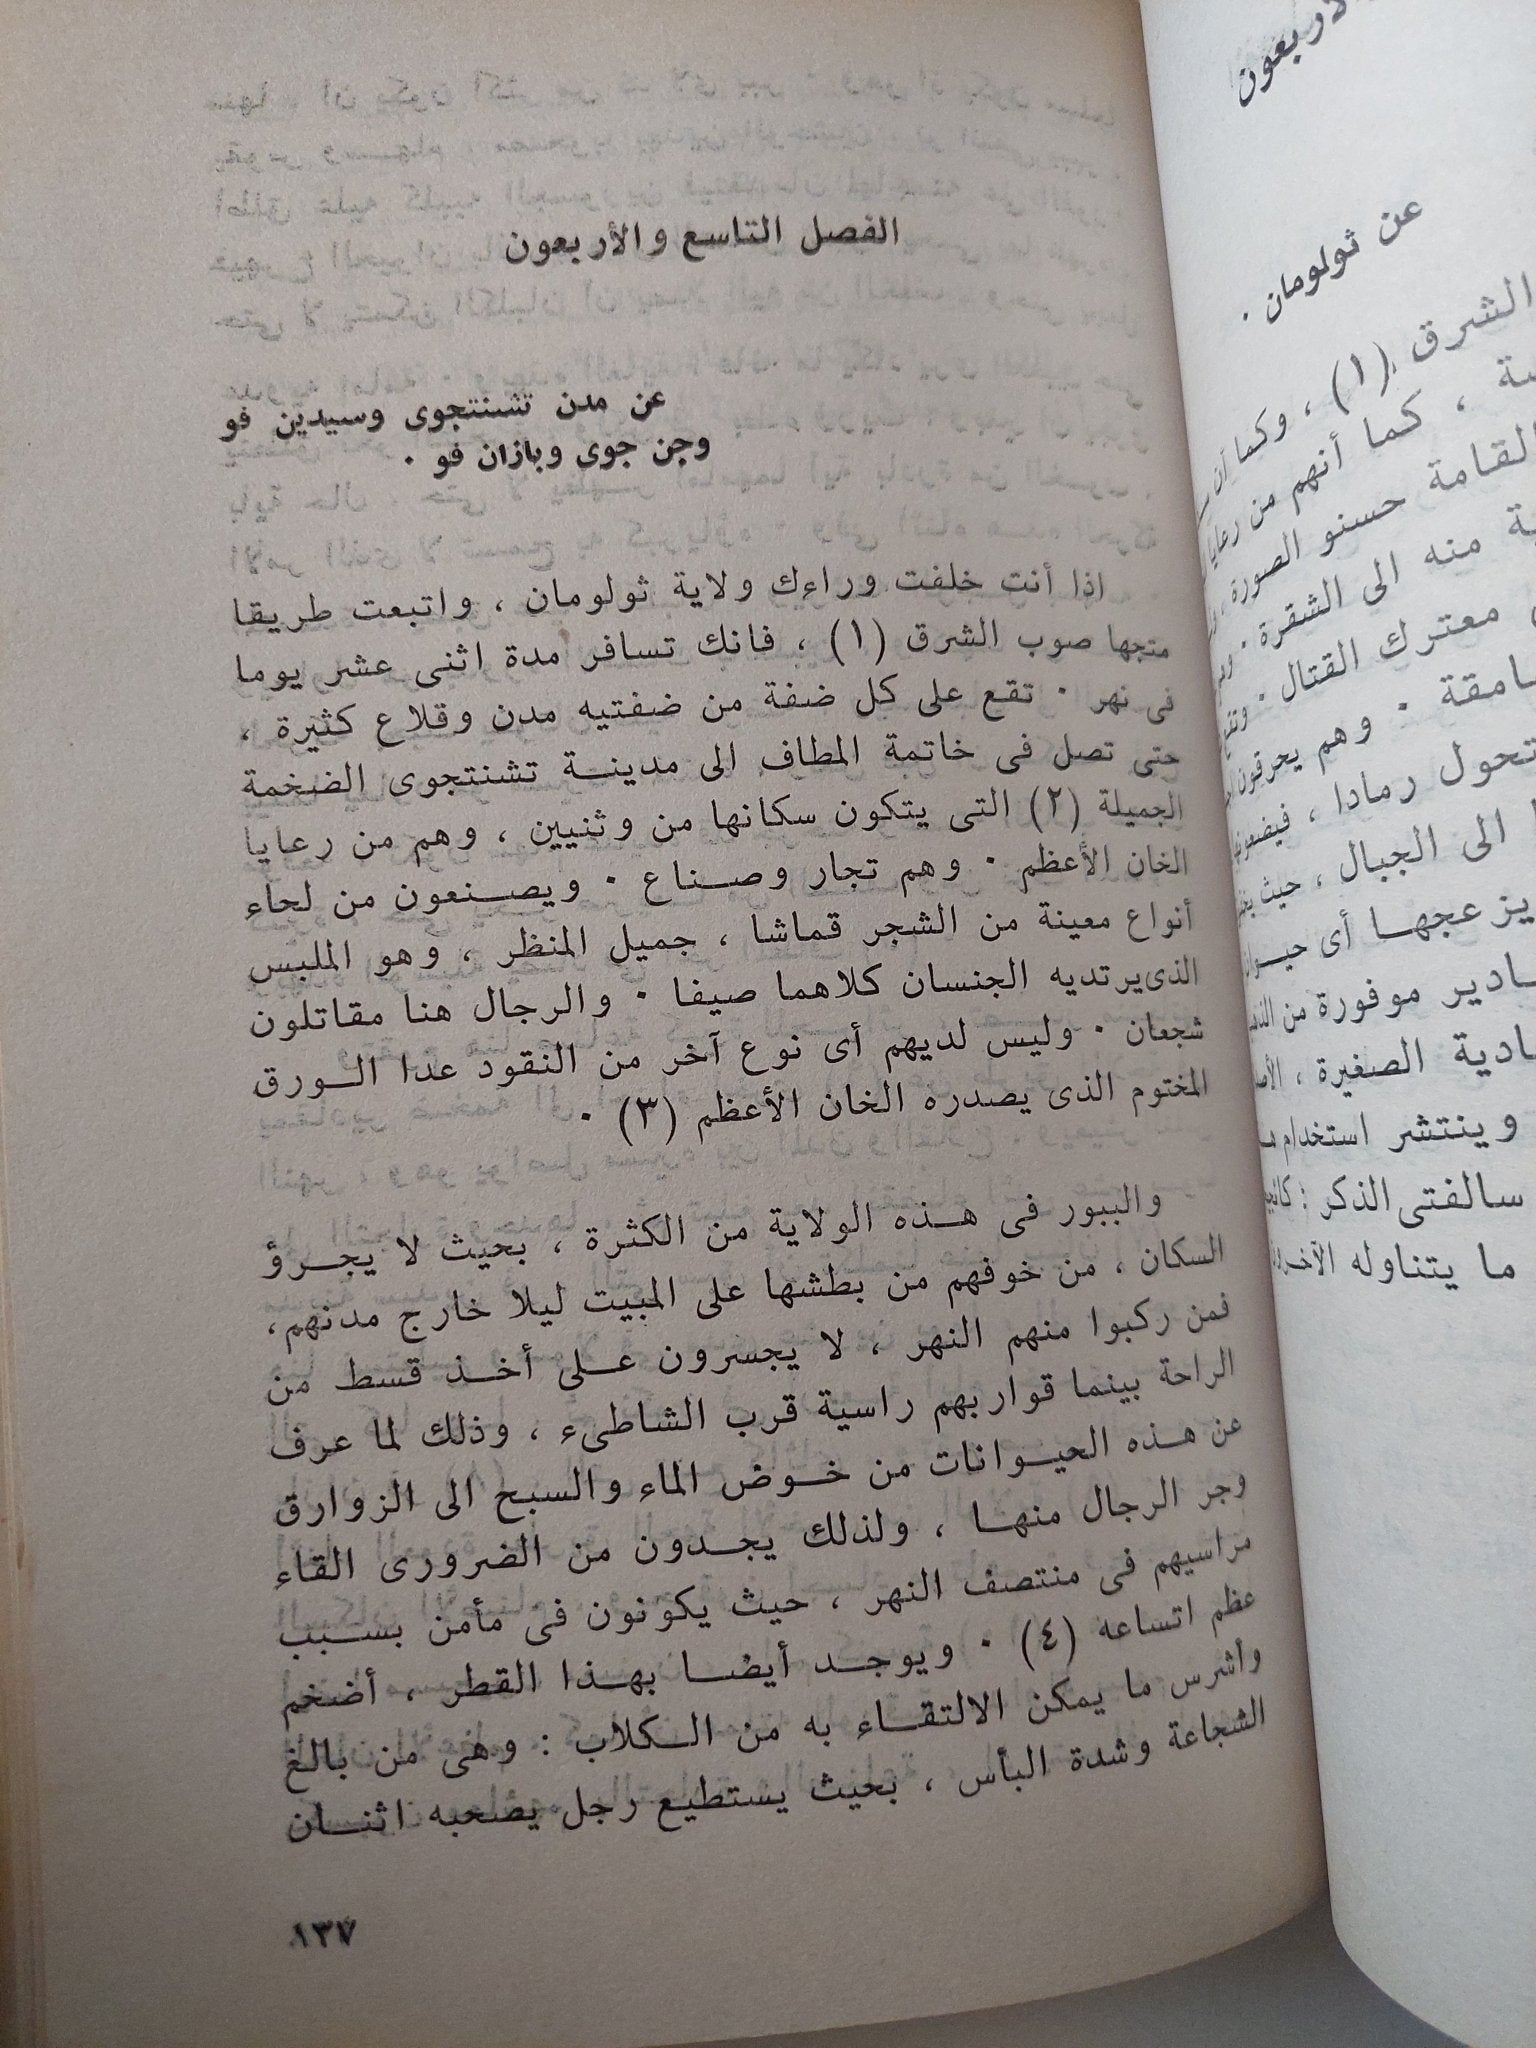 الفصل التاسع والأربعون
عن مدن تشنتجوى وسيدين فو
وجن جوى وبازان فو ٠
اذا أنت خلفت وراءك ولاية ثولومان ، واتبعت طريقا
متجها صوب الشرق (١) ، فانك تسافر مدة اثنى عشر يوما
فى نهر ٠ تقع على كل ضفة من ضفتيه مدن وقلاع كثيرة ،
حتى تصل فى خاتمة المطاف الى مدينة تشنتجوى الضخمة
الجميلة (٢) التى يتكون سكانها من وثنيين ، وهم من رعايا
الخان الأعظم ٠ وهم تجار وصناع ٠ ويصنعون من لحاء
أنواع معينة من الشجر قماشا ، جميل المنظر ، وهو الملبس
الذى يرتديه الجنسان كلاهما صيفا ٠ والرجال هنا مقاتلون
شجعان ٠ وليس لديهم أى نوع آخر من النقود عدا الورق
المختوم الذى يصدره الخان الأعظم (٣) ٠
والببور فى هذه الولاية من الكثرة ، بحيث لا يجرؤ
السكان ، من خوفهم من بطشها على المبيت ليلا خارج مدنهم،
فمن ركبوا منهم النهر ، لا يجسرون على أخذ قسط من
الراحة بينما قواربهم راسية قرب الشاطىء ، وذلك لما عرف
عن هذه الحيوانات من خوض الماء والسبح الى الزوارق
وجر الرجال منها ، ولذلك يجدون من الضرورى القاء
مراسيهم فى منتصف النهر ، حيث يكونون فى مأمن بسبب
عظم اتساعه (٤) ٠ ويوجد أيضا بهذا القطر ، أضخم
وأشرس ما يمكن الالتقاء به من الكلاب : وهى من بالغ
الشجاعة وشدة البأس ، بحيث يستطيع رجل يصحبه اثنان
١٣٧
عن ثولومان ٠
الشرق (١) ، وكما أن
، كما أنهم من رعايا
القامة حسنو الصورة ،
منه الى الشقرة ٠
معترك القتال ٠
٠ وهم يحرقون
رمادا ، فيضعونها
الى الجبال ، حيث
عجها أى
موفورة من
الصغيرة ،
وينتشر استخدام
سالفتى الذكر :
ما يتناوله